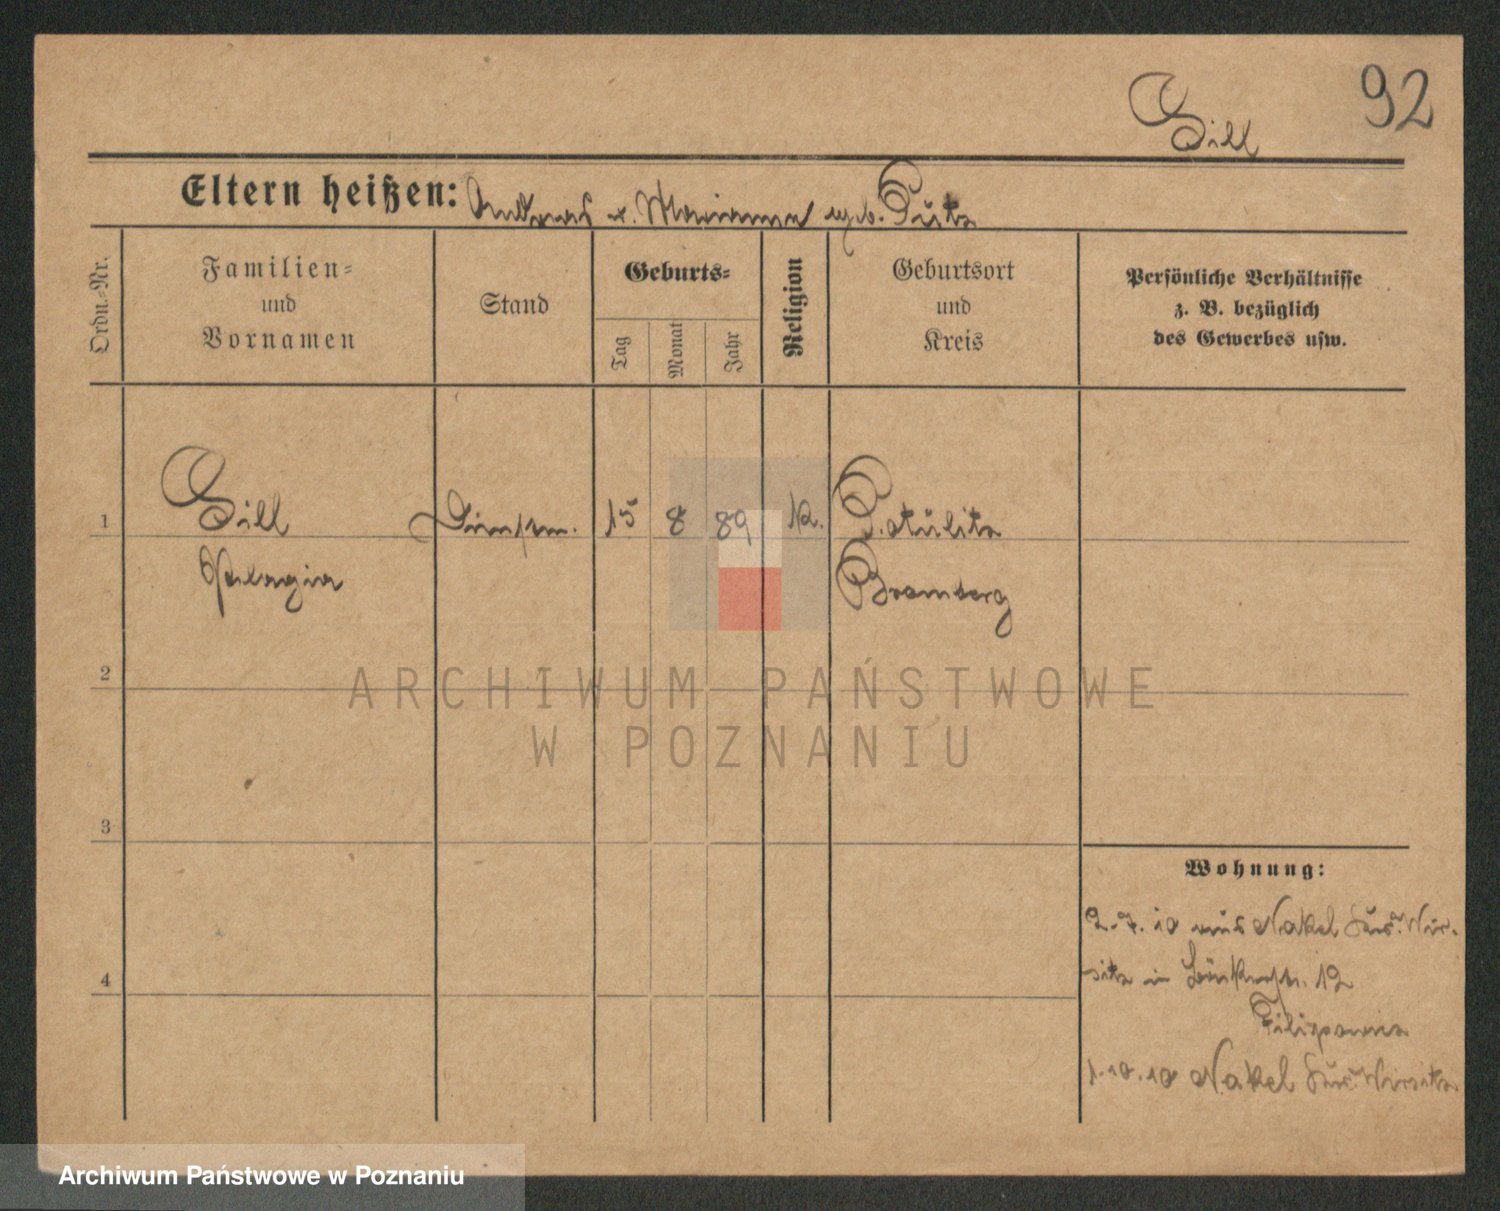 92
Sill
Eltern heißen: Andreas u. Marianna geb. Duta
Ordn.=Nr.
Familien=
und
Vornamen
Stand
Geburts=
Tag
Monat
Jahr
Religion
Geburtsort
und
Kreis
Persönliche Verhältnisse
z. B. bezüglich
des Gewerbes usw.
1
Sill
Pelagia
15
8
89
K.
Bromberg
2
3
4
Wohnung:
2.7.10 aus Nakel Kr. Wir-
sitz in 12
1.10.10 Nakel Wirsitz
ARCHIWUM PAŃSTWOWE
W POZNANIU
Archiwum Państwowe w Poznaniu